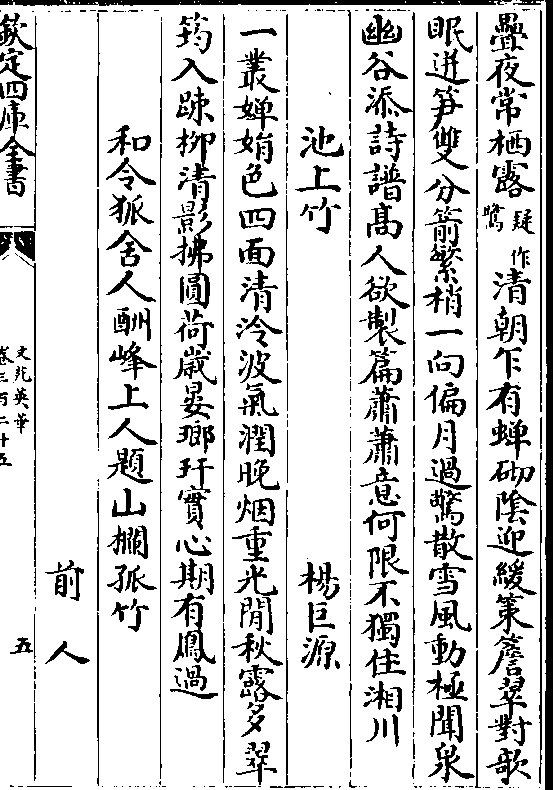 疊夜常栖露疑作鷺清朝乍有蟬砌陰迎緩策簷翠對欹
眠迸笋雙分箭繁梢一向偏月過驚散雪風動極聞泉
幽谷添詩譜髙人欲製篇蕭蕭意何限不獨住湘川
池上竹 楊巨源
一叢嬋娟色四面清冷波氣潤晚烟重光閒秋露多翠
筠入踈柳清影拂圓荷歳晏瑯玕實心期有鳳過
和令狐舍人酬峰上人題山欄孤竹
前人
欽定四庫全書
文苑英華
卷三百二十五
五